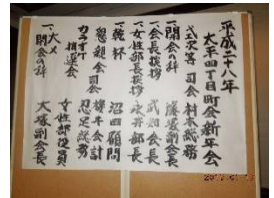 平成二十八年
太平四丁町会新年会
式次第 司会 村木総務
一、開会の辞 藤塚副会長
一、会長挨拶 武如会長
一、女性部長挨拶 永井部長
一、乾杯 沼田顧問
懇親会司会 榎本会計
カラオケ 忍足総務
抽選会 女性部役員
一、大〆
一、閉会の辞 大塚副会長